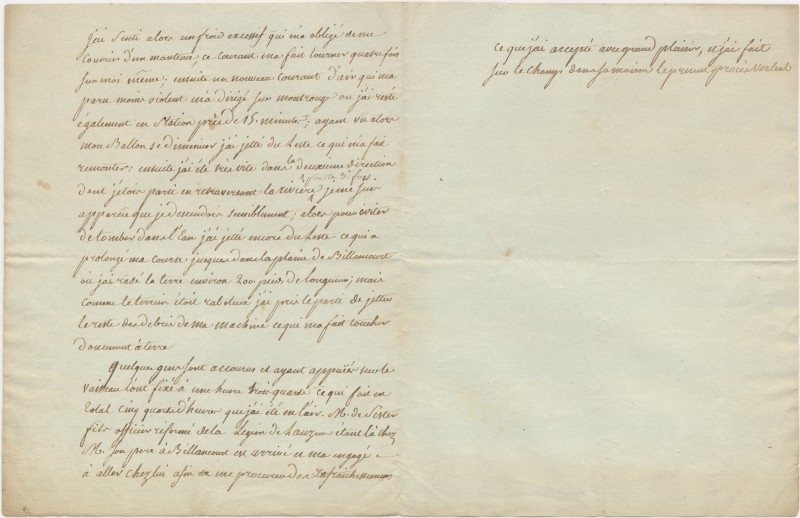 j'ai senti alors un froid excessif qui m'a obligé de me
couvrir d'un manteau; ce courant m'a fait tourner quatre fois
sur moi même; ensuite un nouveau courant d'air qui m'a
paru moins violent m'a dirigé sur montrouge ou j'ai resté
également en station près de 15. minutes; ayant vu alors
mon Ballon se diminuer j'ai jetté du Leste ce qui m'a fait
remonter; ensuite j'ai été très vite dans la deuxieme direction
dont j'etois parti en retraversant la rivière pour la 3e. fois. je me suis
apperçue que je descendois sensiblement; alors pour éviter
de tomber dans l'Eau j'ai jetté encore du Leste ce qui a
prolongé ma course jusques dans la plaine de Billancourt
où j'ai rasé la terre environ 200 pieds de longueur; mais
comme le terrein étoit raboteux j'ai pris le parti de jetter
le reste des debris de ma machine ce qui m'a fait toucher
doucement à terre
Quelques gens sont accourus et ayant appuiés sur le
vaisseau l'ont fixé à une heure trois quarts ce qui fait en
total cinq quarts d'heures que j'ai été en l'air. M. de
fils officier réformé de la Légion de Lauzun étant là chez
M. son père à Billancourt est arrivé et m'a engagé
à aller chez lui afin de me procurer des rafraichissements
ce que j'ai accepté avec grand plaisir, et j'ai fait
sur le champs dans sa maison le present procès verbal